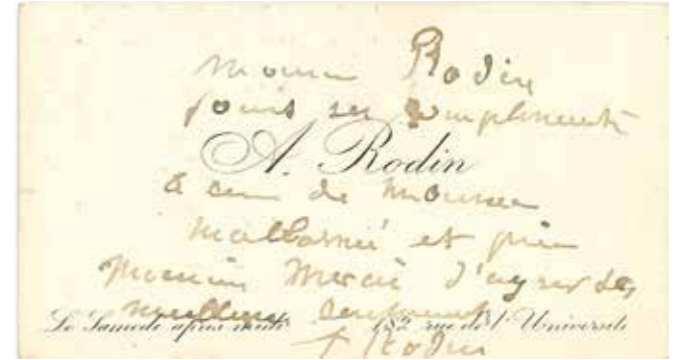 Monsieur Rodin
joint ses compliments
A. Rodin
à ceux de Monsieur
et prie
Monsieur Mercié d'agréer ses
meilleurs sentiments
Le Samedi après midi 182 rue de l'Université
A Rodin